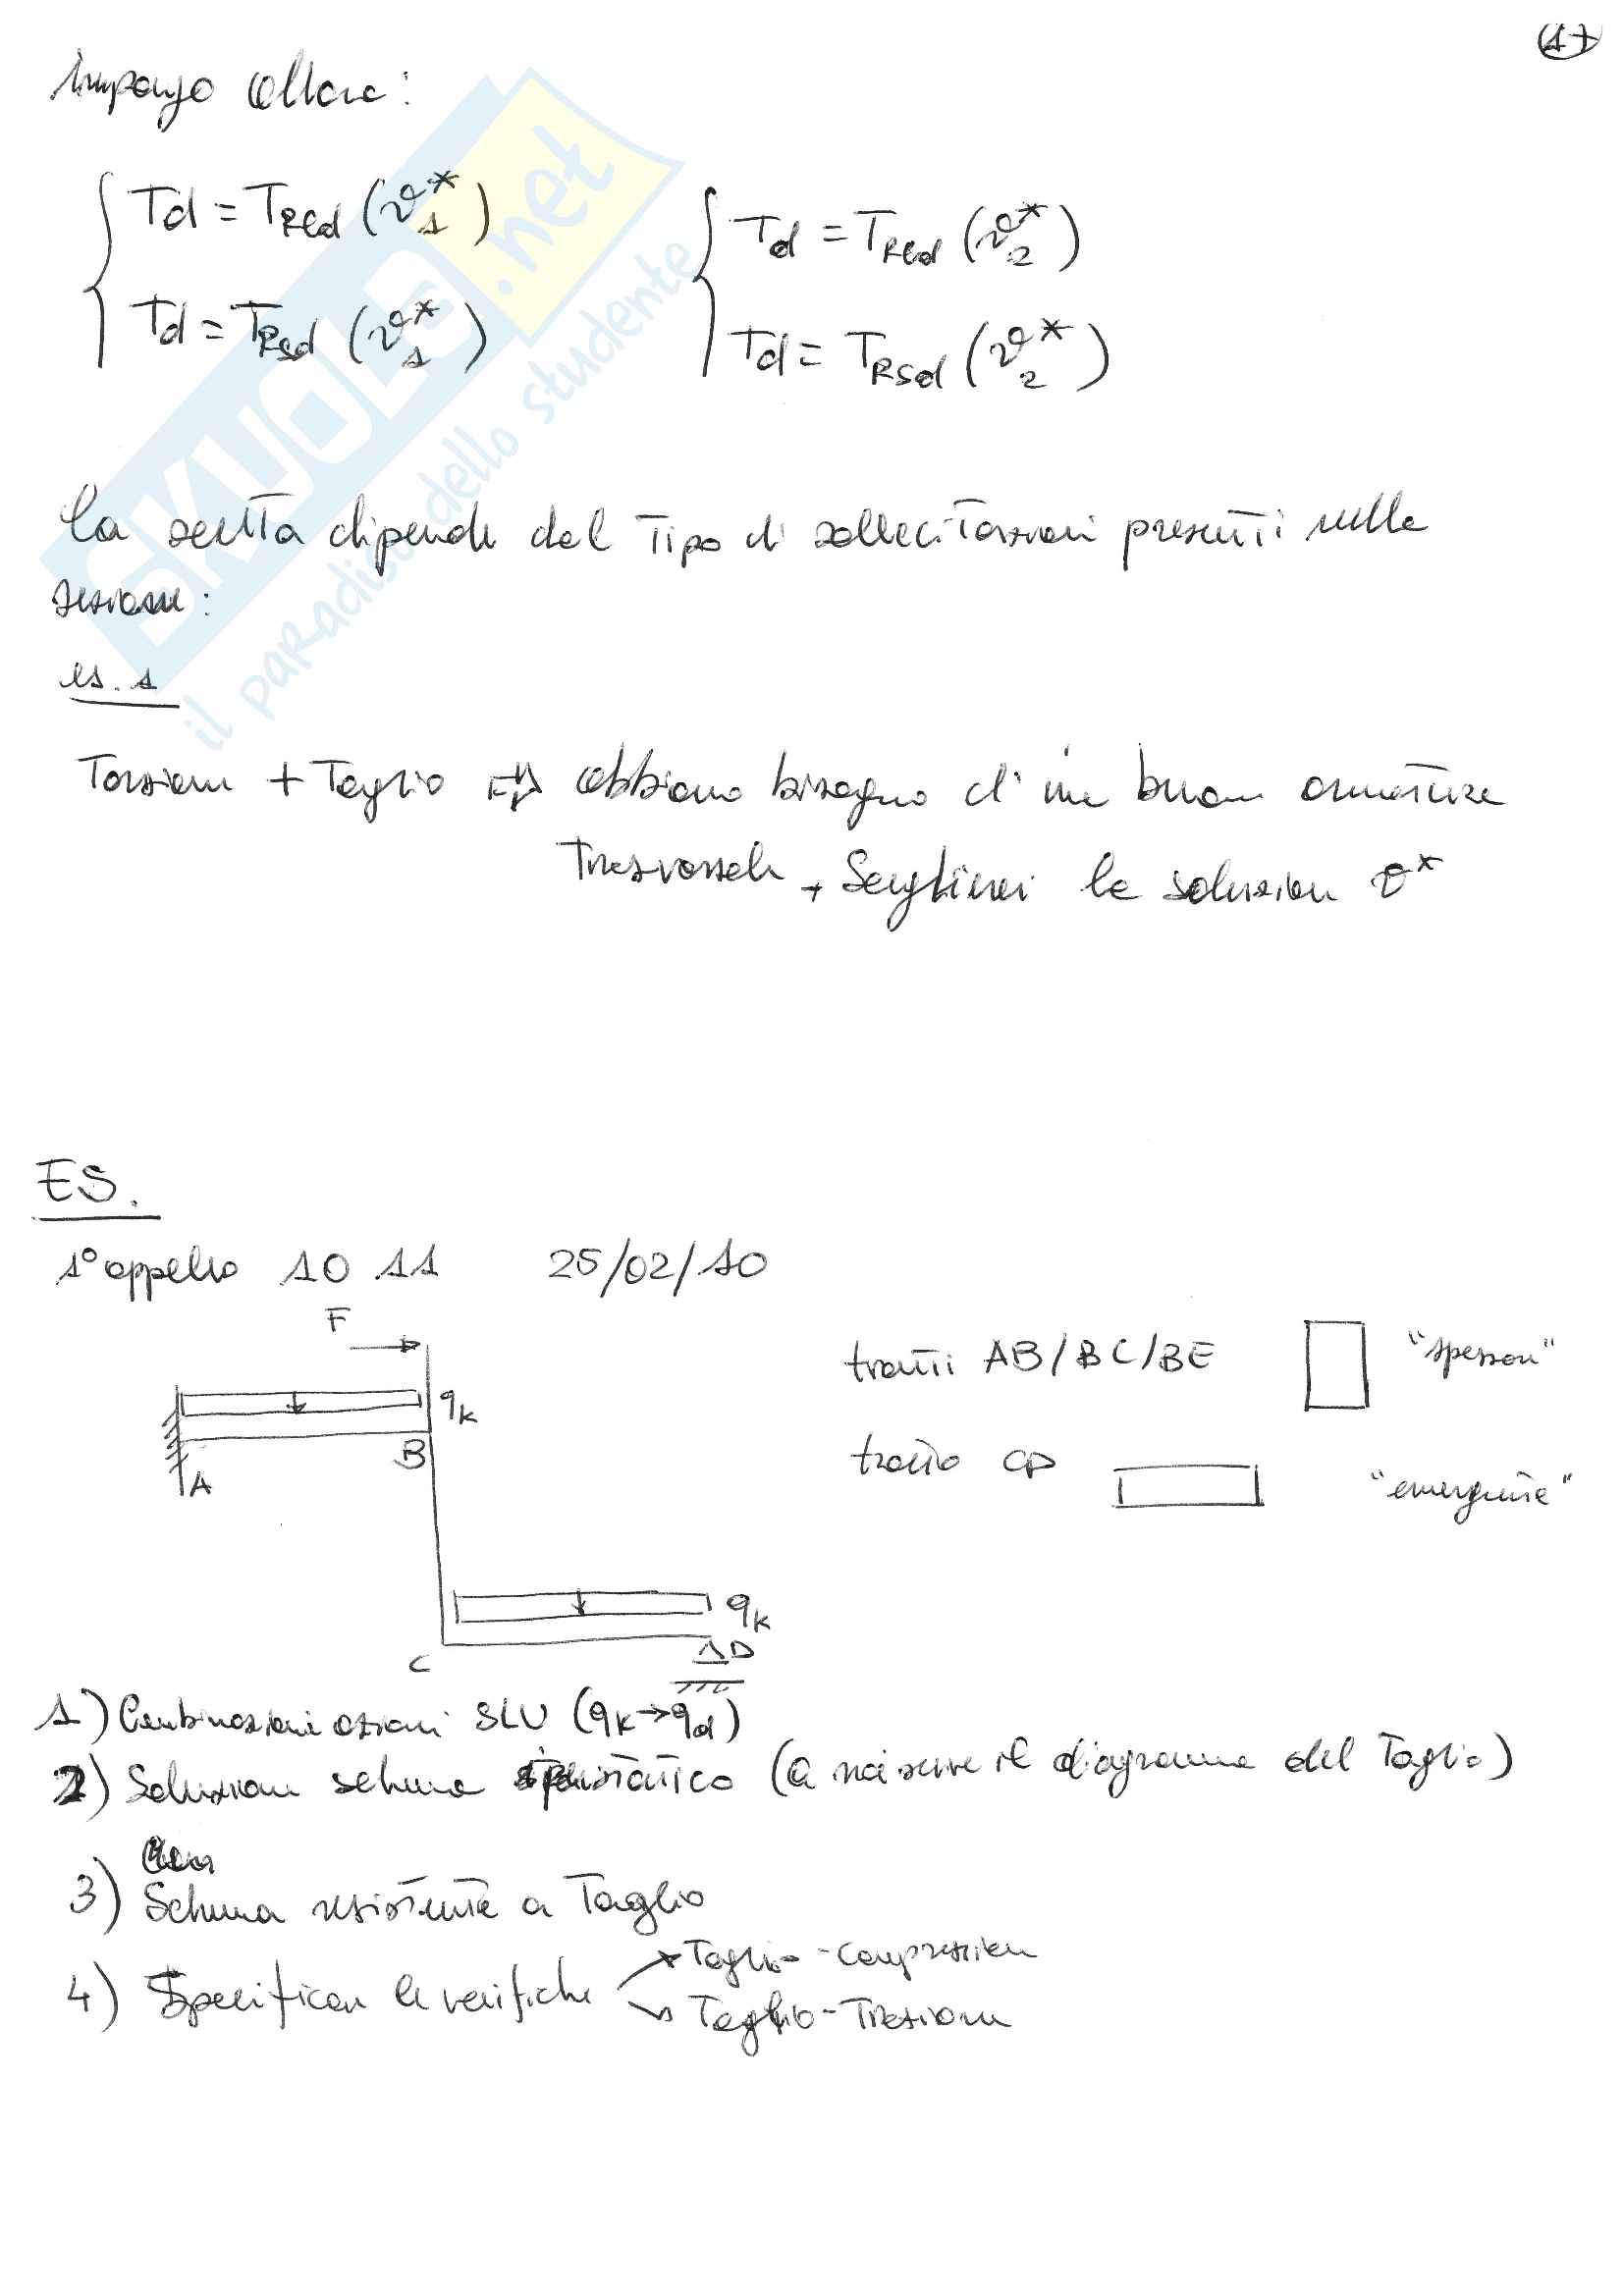 17
impongo allora:
Td = TRcd (ϑ1*)
Td = TRsd (ϑ1*)
Td = TRcd (ϑ2*)
Td = TRsd (ϑ2*)
la scelta dipende dal tipo di sollecitazioni presenti nella
sezione:
es. 1
Torsione + Taglio ⇒ abbiamo bisogno di una buona armatura
trasversale → Sceglierei la soluzione ϑ*
ES.
1° appello 10 11 25/02/10
F
qk
A
B
qk
C
D
tratti AB/BC/BE "spessore"
tratto CD "emergente"
1) Combinazioni azioni SLU (qk→qd)
2) Soluzione schema iperstatico (a noi serve il diagramma del Taglio)
3) Schema resistente a Taglio
4) Specificare le verifiche
Taglio-compressione
Taglio-Trazione
SKUOLA.net
il paradiso dello studente